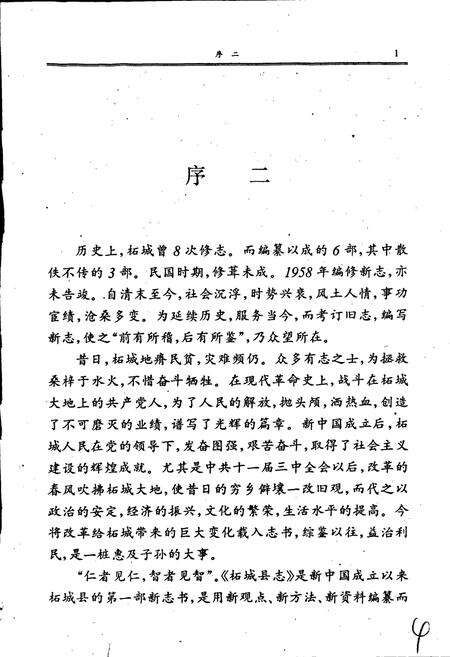 序 二 1
序 二
历史上，柘城曾8次修志。而编纂以成的6部，其中散
佚不传的3部。民国时期，修葺未成。1958年编修新志，亦
未告竣。自清末至今，社会沉浮，时势兴衰，风土人情，事功
宦绩，沧桑多变。为延续历史，服务当今，而考订旧志，编写
新志，使之“前有所稽，后有所鉴”，乃众望所在。
昔日，柘城地瘠民贫，灾难频仍。众多有志之士，为拯救
桑梓于水火，不惜奋斗牺牲。在现代革命史上，战斗在柘城
大地上的共产党人，为了人民的解放，抛头颅，洒热血，创造
了不可磨灭的业绩，谱写了光辉的篇章。新中国成立后，柘
城人民在党的领导下，发奋图强，艰苦奋斗，取得了社会主义
建设的辉煌成就。尤其是中共十一届三中全会以后，改革的
春风吹拂柘城大地，使昔日的穷乡僻壤一改旧观，而代之以
政治的安定，经济的振兴，文化的繁荣，生活水平的提高。今
将改革给柘城带来的巨大变化载入志书，综鉴以往，益治利
民，是一桩惠及子孙的大事。
“仁者见仁，智者见智”。《柘城县志》是新中国成立以来
柘城县的第一部新志书，是用新观点、新方法、新资料编纂而
4